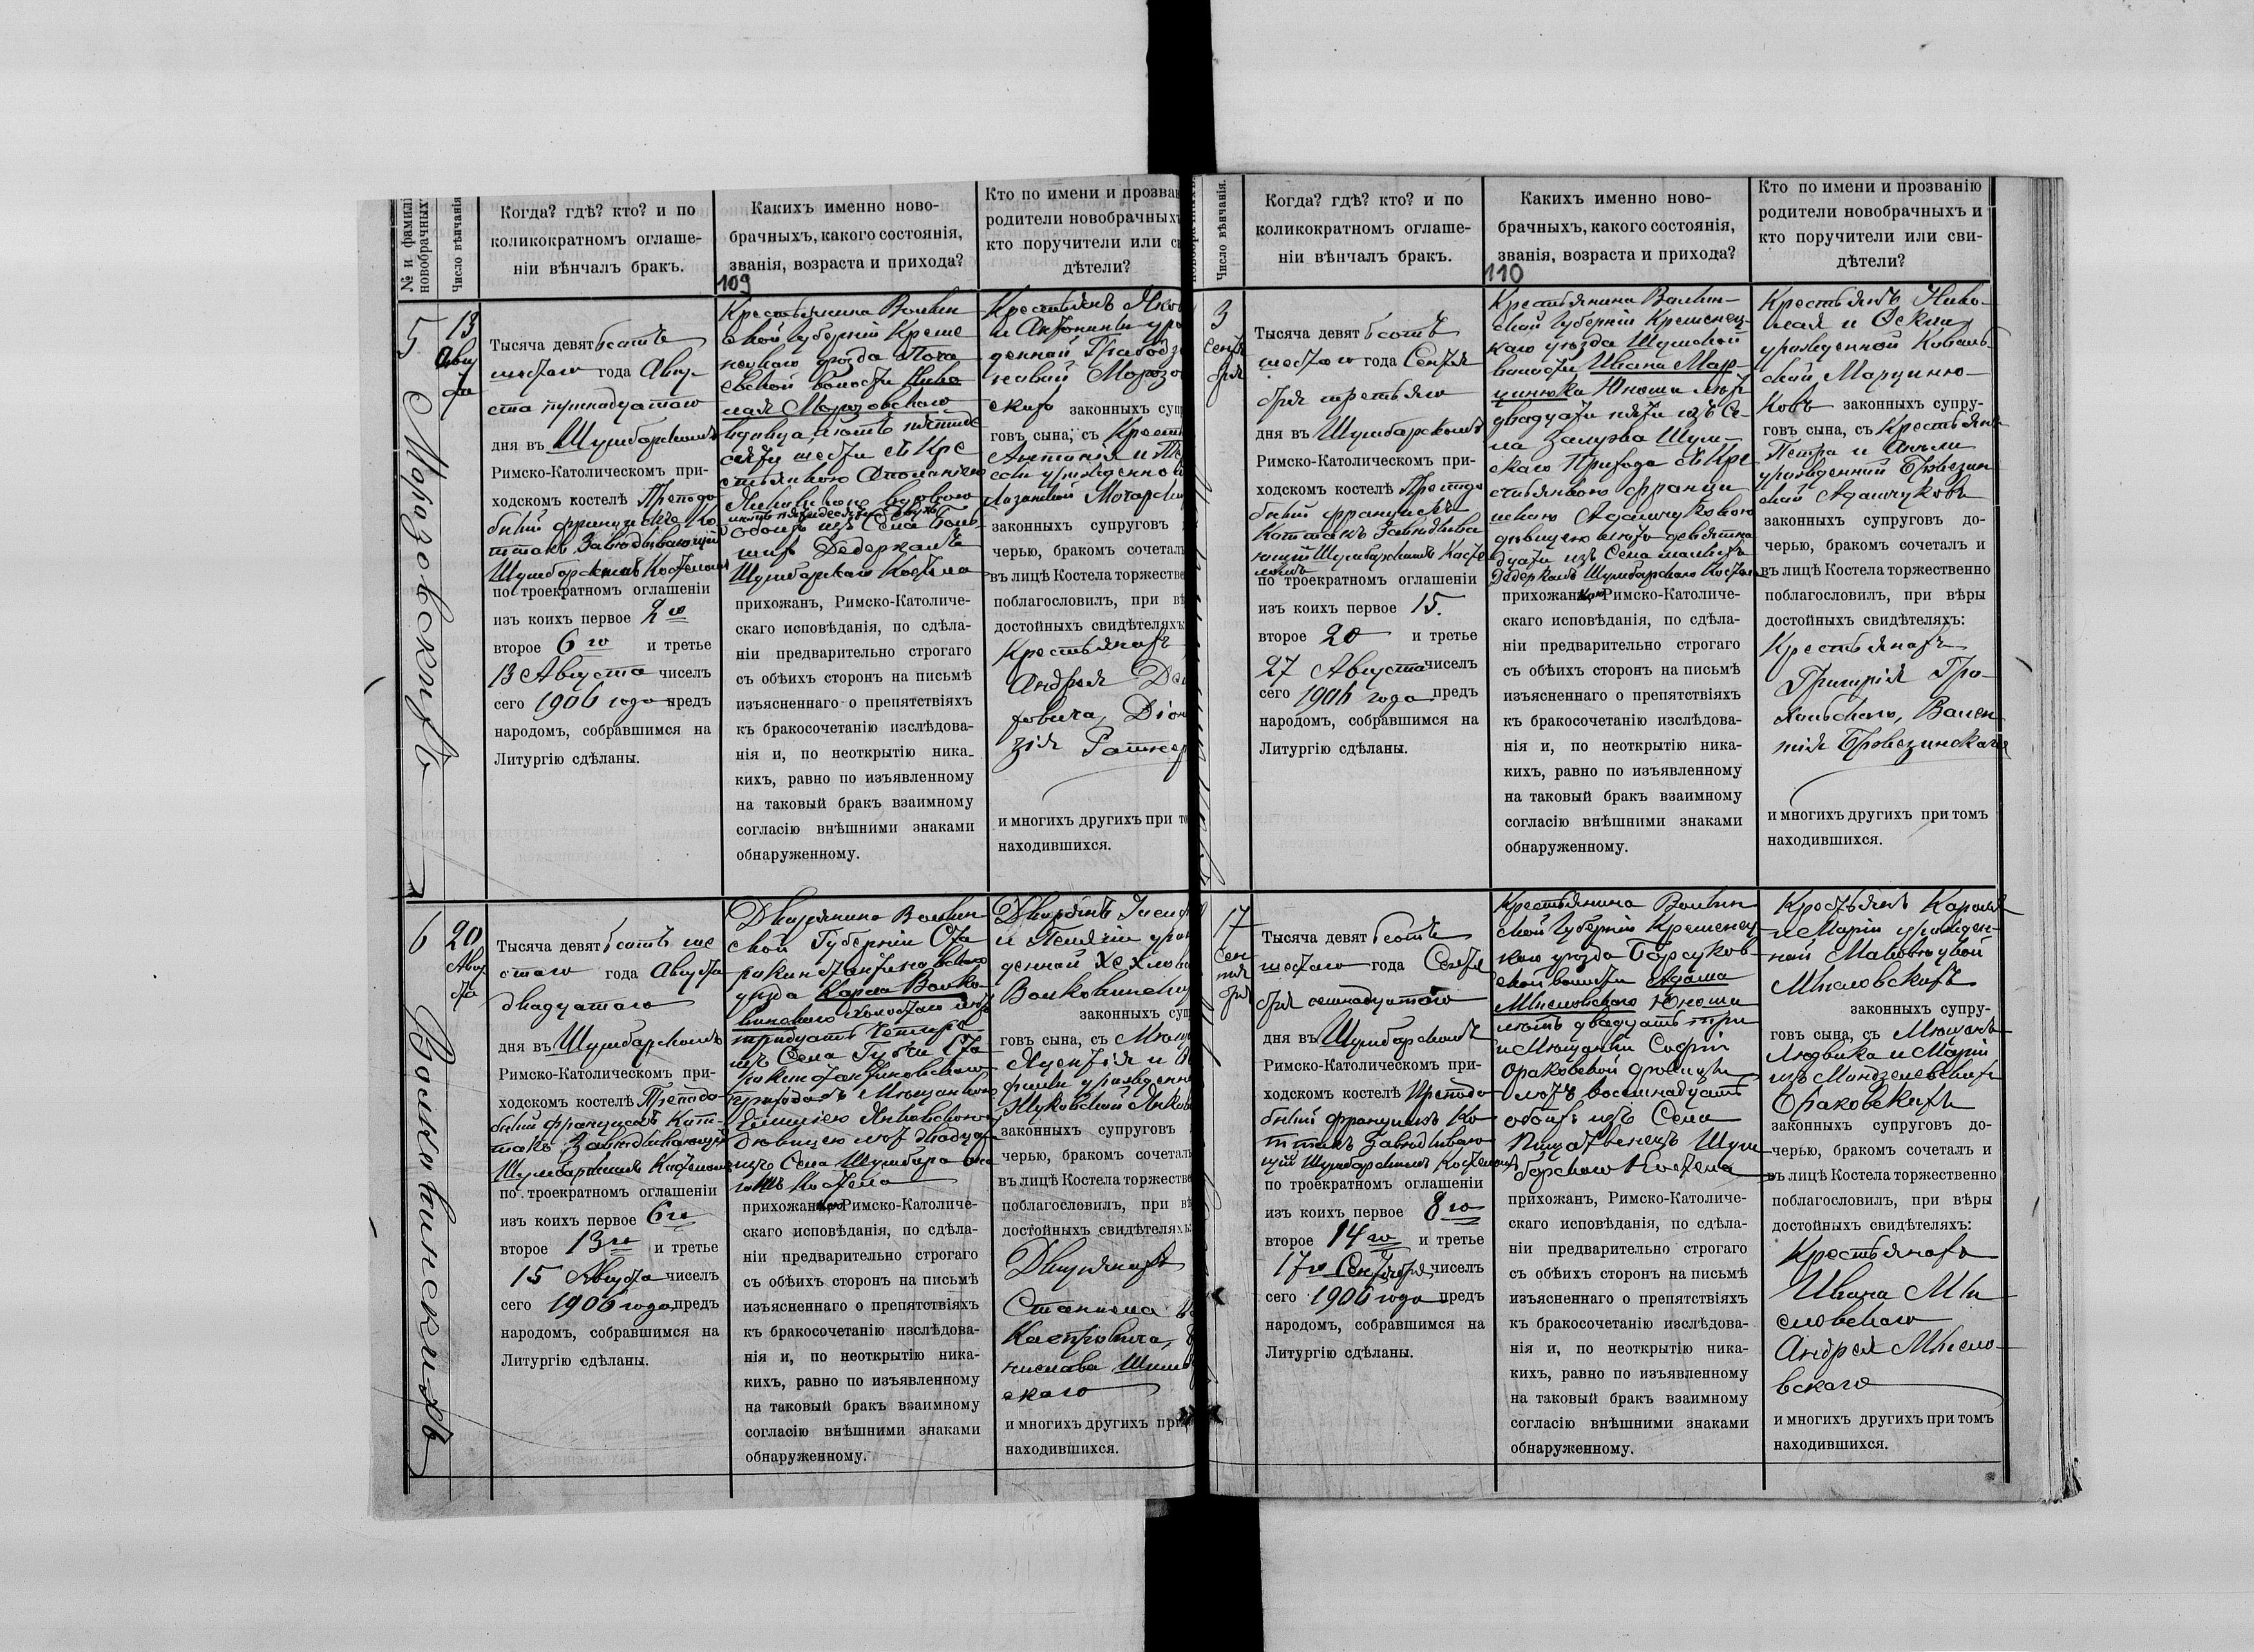 № и фамилі
новобрачных
Число вѣнчанія
Когда? гдѣ? кто? и по
коликократномъ оглаше-
ніи вѣнчалъ бракъ.
Какихъ именно ново-
брачныхъ, какого состоянія,
званія, возраста и прихода?
109
Кто по имени и прозван
родители новобрачных
кто поручители или с
дѣтели?
5
Морозовскихъ
13
Авгу
ста
Тысяча девятьсотъ
шестого года Авгу-
ста тринадцатаго
дня въ Шумбарскомъ
Римско-Католическомъ при-
ходскомъ костелѣ Преподо
бный Францискъ
Завѣдывающій
Шумбарскимъ Костеломъ
по троекратномъ оглашеніи
изъ коихъ первое 2го
второе 6го и третье
13 Августа чиселъ
сего 1906 года предъ
народомъ, собравшимся на
Литургію сдѣланы.
Крестьянина Волын
ской Губерніи Креме
нецкаго уѣзда Поча
евской волости Нико
лая Морозовскаго
вдовца, лѣтъ пятиде
сяти шести съ Кре
стьянкою
вдовою
лѣтъ пятидесяти двухъ
обоихъ изъ Села Боль
шихъ Дедеркалъ
Шумбарскаго Костела
прихожанъ, Римско-Католиче-
скаго исповѣданія, по сдѣла-
ніи предварительно строгаго
съ обѣихъ сторонъ на письмѣ
изъясненнаго о препятствіяхъ
къ бракосочетанію изслѣдова-
нія и, по неоткрытію ника-
кихъ, равно по изъявленному
на таковый бракъ взаимному
согласію внѣшними знаками
обнаруженному.
Крестьянъ Яко
и Антонины уро
денной
Морозо
скихъ законныхъ суп
говъ сына, съ Крест
Антонія и
урожденной
законныхъ супруговъ
черью, бракомъ сочетал
въ лицѣ Костела торжестве
поблагословилъ, при вѣ
достойныхъ свидѣтеляхъ
Крестьянахъ
Андрея
Діони
зія
и многихъ другихъ при то
находившихся.
6
Волковинскихъ
20
Авгу
ста
Тысяча девятьсотъ ше
стаго года Августа
двадцатаго
дня въ Шумбарскомъ
Римско-Католическомъ при-
ходскомъ костелѣ Преподо
бный Францискъ
Завѣдывающій
Шумбарскимъ Костеломъ
по троекратномъ оглашеніи
изъ коихъ первое 6го
второе 13го и третье
15 Августа чиселъ
сего 1906 года предъ
народомъ, собравшимся на
Литургію сдѣланы.
Дворянина Волын
ской Губерніи Ста
роконстантиновскаго
уѣзда Карла Волко
винскаго холостаго лѣтъ
тридцать четыре
изъ Села Ста
роконстантиновскаго
прихода съ Мѣщанкою
Янковскою
дѣвицею лѣтъ двадца
изъ Села Шумбара
Костела
прихожанъ Римско-Католиче-
скаго исповѣданія, по сдѣла-
ніи предварительно строгаго
съ обѣихъ сторонъ на письмѣ
изъясненнаго о препятствіяхъ
къ бракосочетанію изслѣдова-
нія и, по неоткрытію ника-
кихъ, равно по изъявленному
на таковый бракъ взаимному
согласію внѣшними знаками
обнаруженному.
Дворянъ
и Пелагіи уро
денной
Волковински
законныхъ суп
говъ сына, съ Мѣщ
и
урожденно
законныхъ супруговъ
черью, бракомъ сочеталъ
въ лицѣ Костела торжестве
поблагословилъ, при вѣ
достойныхъ свидѣтеляхъ
Дворянахъ
скаго
и многихъ другихъ при
находившихся.
Число вѣнчанія.
Когда? гдѣ? кто? и по
коликократномъ оглаше-
ніи вѣнчалъ бракъ.
Какихъ именно ново-
брачныхъ, какого состоянія,
званія, возраста и прихода?
110
Кто по имени и прозванію
родители новобрачныхъ и
кто поручители или сви-
дѣтели?
3
Сентя
бря
Тысяча девятьсотъ
шестого года Сентя
бря третьяго
дня въ Шумбарскомъ
Римско-Католическомъ при-
ходскомъ костелѣ Преподо
бный Францискъ
Завѣдыва
ющій Шумбарскимъ Косте
ломъ
по троекратномъ оглашеніи
изъ коихъ первое 15.
второе 20 и третье
27 Августа чиселъ
сего 1906 года предъ
народомъ, собравшимся на
Литургію сдѣланы.
Крестьянина Волын-
ской Губерніи Кременец-
каго уѣзда Шумской
волости Ивана Мар-
цинюка Юноши лѣтъ
двадцати пяти изъ Се-
ла Залужа Шум-
скаго Прихода съ Кре
стьянкою Франци
шкою Адамчуковою
дѣвицею лѣтъ девятна
дцати изъ Села малыхъ
Дедеркалъ Шумбарскаго Костела
прихожанъ Римско-Католиче-
скаго исповѣданія, по сдѣла-
ніи предварительно строгаго
съ обѣихъ сторонъ на письмѣ
изъясненнаго о препятствіяхъ
къ бракосочетанію изслѣдова-
нія и, по неоткрытію ника-
кихъ, равно по изъявленному
на таковый бракъ взаимному
согласію внѣшними знаками
обнаруженному.
Крестьянъ Нико-
лая и
урожденной Коваль-
ской Марциню-
ковъ законныхъ супру-
говъ сына, съ Крестьянъ
Петра и
урожденной Бржезин
ской Адамчуковъ
законныхъ супруговъ до-
черью, бракомъ сочеталъ и
въ лицѣ Костела торжественно
поблагословилъ, при вѣры
достойныхъ свидѣтеляхъ:
Крестьянахъ
Григорія Гра-
Вален
тія Бржезинскаго
и многихъ другихъ при томъ
находившихся.
17
Сен
тя
бря
Тысяча девятьсотъ
шестаго года Сентя
бря семнадцатаго
дня въ Шумбарскомъ
Римско-Католическомъ при-
ходскомъ костелѣ Преподо
бный Францискъ
Завѣдываю
щій Шумбарскимъ Костеломъ
по троекратномъ оглашеніи
изъ коихъ первое 8го
второе 14го и третье
17го Сентября чиселъ
сего 1906 года предъ
народомъ, собравшимся на
Литургію сдѣланы.
Крестьянина Волын
ской Губерніи Кременец
каго уѣзда Борсуков-
ской волости Адама
Мысловскаго Юноши
лѣтъ двадцать три
и Мѣщанки Софіи
Ораковской дѣвицы
лѣтъ восемнадцать
обоихъ изъ Села
Шум
барскаго Костела
прихожанъ, Римско-Католиче-
скаго исповѣданія, по сдѣла-
ніи предварительно строгаго
съ обѣихъ сторонъ на письмѣ
изъясненнаго о препятствіяхъ
къ бракосочетанію изслѣдова-
нія и, по неоткрытію ника-
кихъ, равно по изъявленному
на таковый бракъ взаимному
согласію внѣшними знаками
обнаруженному.
Крестьянъ Кароля
и Маріи урожден-
ной
Мысловскихъ
законныхъ супру-
говъ сына, съ Мѣщанъ
Людвика и Маріи
изъ
Ораковскихъ
законныхъ супруговъ до-
черью, бракомъ сочеталъ и
въ лицѣ Костела торжественно
поблагословилъ, при вѣры
достойныхъ свидѣтеляхъ:
Крестьянахъ
Ивана Мы
словскаго
Андрея Мысло-
вскаго
и многихъ другихъ при томъ
находившихся.